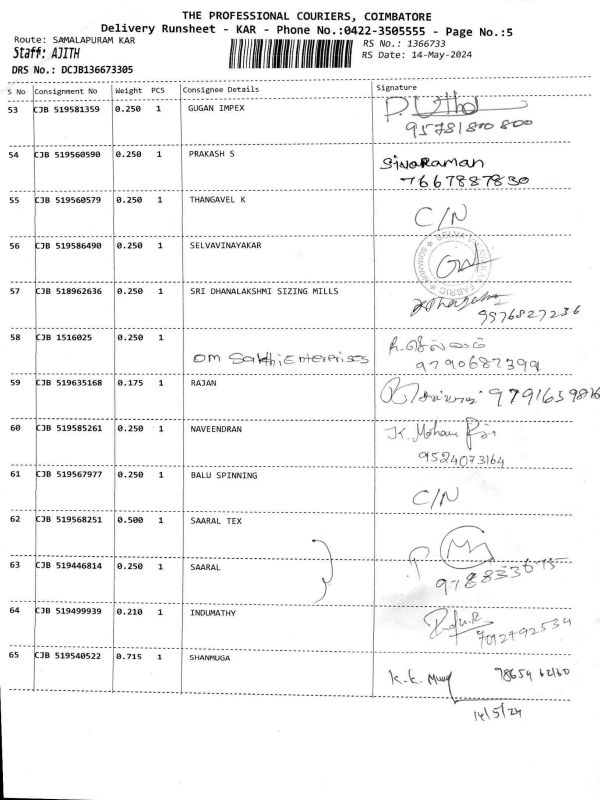 THE PROFESSIONAL COURIERS, COIMBATORE
Delivery Runsheet - KAR - Phone No.:0422-3505555 - Page No.:5
Route: SAMALAPURAM KAR
RS No.: 1366733
Staff: AJITH
RS Date: 14-May-2024
DRS No.: DCJB136673305
S No Consignment No Weight PCS Consignee Details Signature
53 CJB 519581359 0.250 1 GUGAN IMPEX
95781800800
54 CJB 519560590 0.250 1 PRAKASH S
Sivaraman
7667887830
55 CJB 519560579 0.250 1 THANGAVEL K
C/N
56 CJB 519586490 0.250 1 SELVAVINAYAKAR
57 CJB 518962636 0.250 1 SRI DHANALAKSHMI SIZING MILLS
9976827236
58 CJB 1516025 0.250 1
OM Sakthi Enterprises
9790682399
59 CJB 519635168 0.175 1 RAJAN
60 CJB 519585261 0.250 1 NAVEENDRAN
K. Mohan
9524073164
61 CJB 519567977 0.250 1 BALU SPINNING
C/N
62 CJB 519568251 0.500 1 SAARAL TEX
63 CJB 519446814 0.250 1 SAARAL
64 CJB 519499939 0.210 1 INDUMATHY
7012792534
65 CJB 519540522 0.715 1 SHANMUGA
K.K.
78654 62160
14/5/24